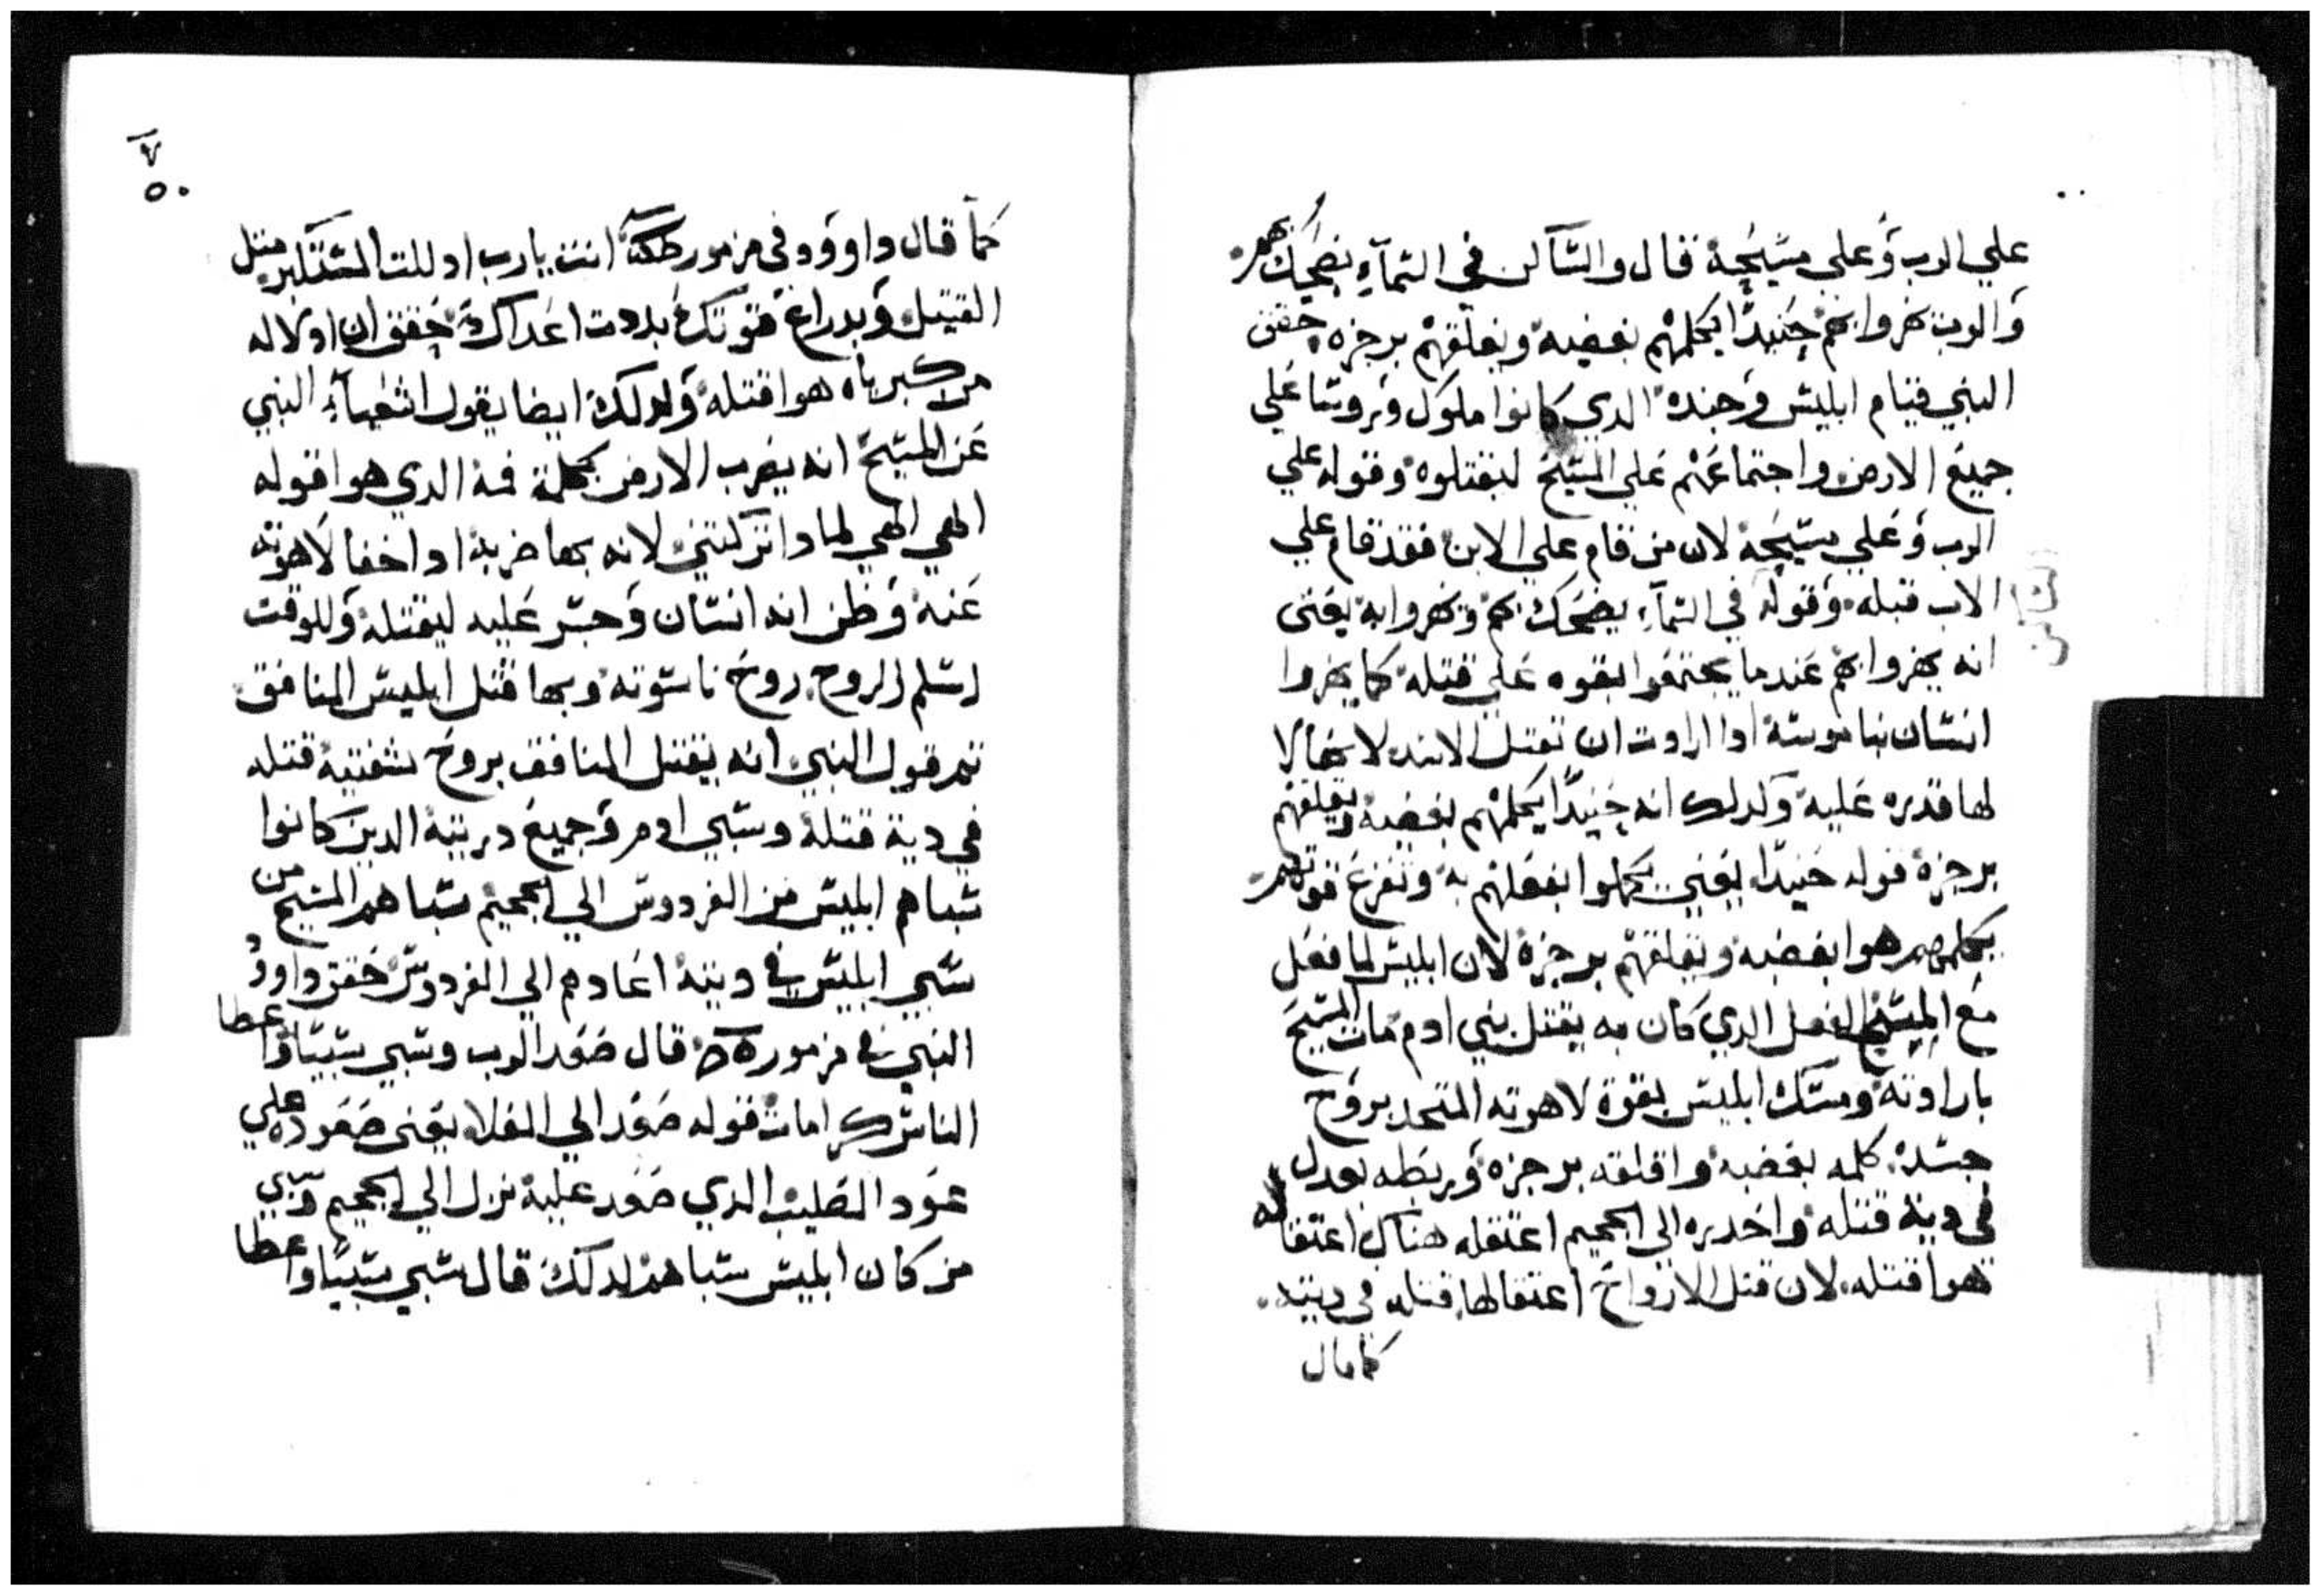 علي الرب وعلي مسيحه قال والساكن في السماء يضحك بهم
والرب يهزوا بهم حينيدا يكلمهم بغضبه ويقلقهم برجزه حقق
النبي قيام ابليس وجنده الدي كانوا ملوك وروسا علي
جميع الارض واجتماعهم علي المسيح ليقتلوه وقوله علي
الرب وعلي مسيحه لان من قام علي الابن فقد قام علي
الاب قبله وقوله في السماء يضحك بهم ويهزوا به يعني
انه يهزوا بهم عندما يجتمعوا بقوه علي قتله كما يهزوا
انسان بناموسه ادا ارادت ان تقتل الاسد لانها لا
لها قدره عليه وكدلك انه حينيدا يكلمهم بغضبه ويقلقهم
برجزه قوله حينيدا يعني يكملوا بفعلهم به وتفرغ قوتهم
يكلمهم هوا بغضبه ويقلقهم برجزه لان ابليس لما فعل
مع المسيح الفعل الدي كان به يقتل بني ادم مات المسيح
بارادته ومسك ابليس بقوة لاهوته المتحد بروح
جسده كلمه بغضبه واقلقه برجزه وربطه بعدل
في دية قتله واحدره الي الجحيم اعتقله هناك اعتقاله
هوا قتله لان قتل الارواح اعتقالها قتله في ديته
كما قال
٥٠
كما قال داوود في مزمور انت يارب ادللت المستكبر متل
القتيل وبدراع قوتك بددت اعداك حقق ان ادلاله
من كبرياه هوا قتله ولدلك ايضا يقول اشعياء النبي
عن المسيح انه يضرب الارض بكلمة فمه الدي هوا قوله
الهي الهي لمادا تركتني لانه بها ضربه اد اخفا لاهوته
عنه وظن انه انسان وجسر عليه ليقتله وللوقت
اسلم الروح روح ناسوته وبها قتل ابليس المنافق
تم قول النبي انه يقتل المنافق بروح شفتيه قتله
في دية قتله وسبي ادم وجميع دريته الدين كانوا
سباهم ابليس من الفردوس الي الجحيم سباهم المسيح من
سبي ابليس في ديته اعادهم الي الفردوس حقق داوود
النبي في مزمور قال صعد الرب وسبي سبيا واعطا
الناس كرامات قوله صعد الي العلا يعني صعوده علي
عود الصليب الدي صعد عليه نزل الي الجحيم وسبي
من كان ابليس سباهم لدلك قال سبي سبيا واعطا